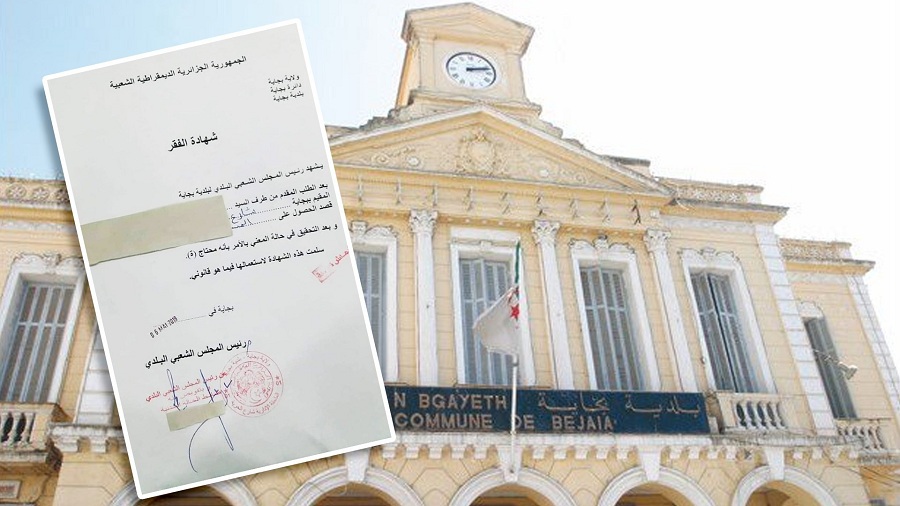 الجمهورية الجزائرية الديمقراطية الشعبية
ولاية بجاية
دائرة بجاية
بلدية بجاية
شهادة الفقر
يشهد رئيس المجلس الشعبي البلدي لبلدية بجاية
بعد الطلب المقدم من طرف السيد
المقيم ببجاية
قصد الحصول على
و بعد التحقيق في حالة المعني بالامر بأنه محتاج (ة)
سلمت هذه الشهادة لاستعمالها فيما هو قانوني.
بجاية في
06 MAI 2019
رئيس المجلس الشعبي البلدي
عن رئيس المجلس الشعبي البلدي
N BGAYETH بلدية بجاية
COMMUNE DE BEJAIA